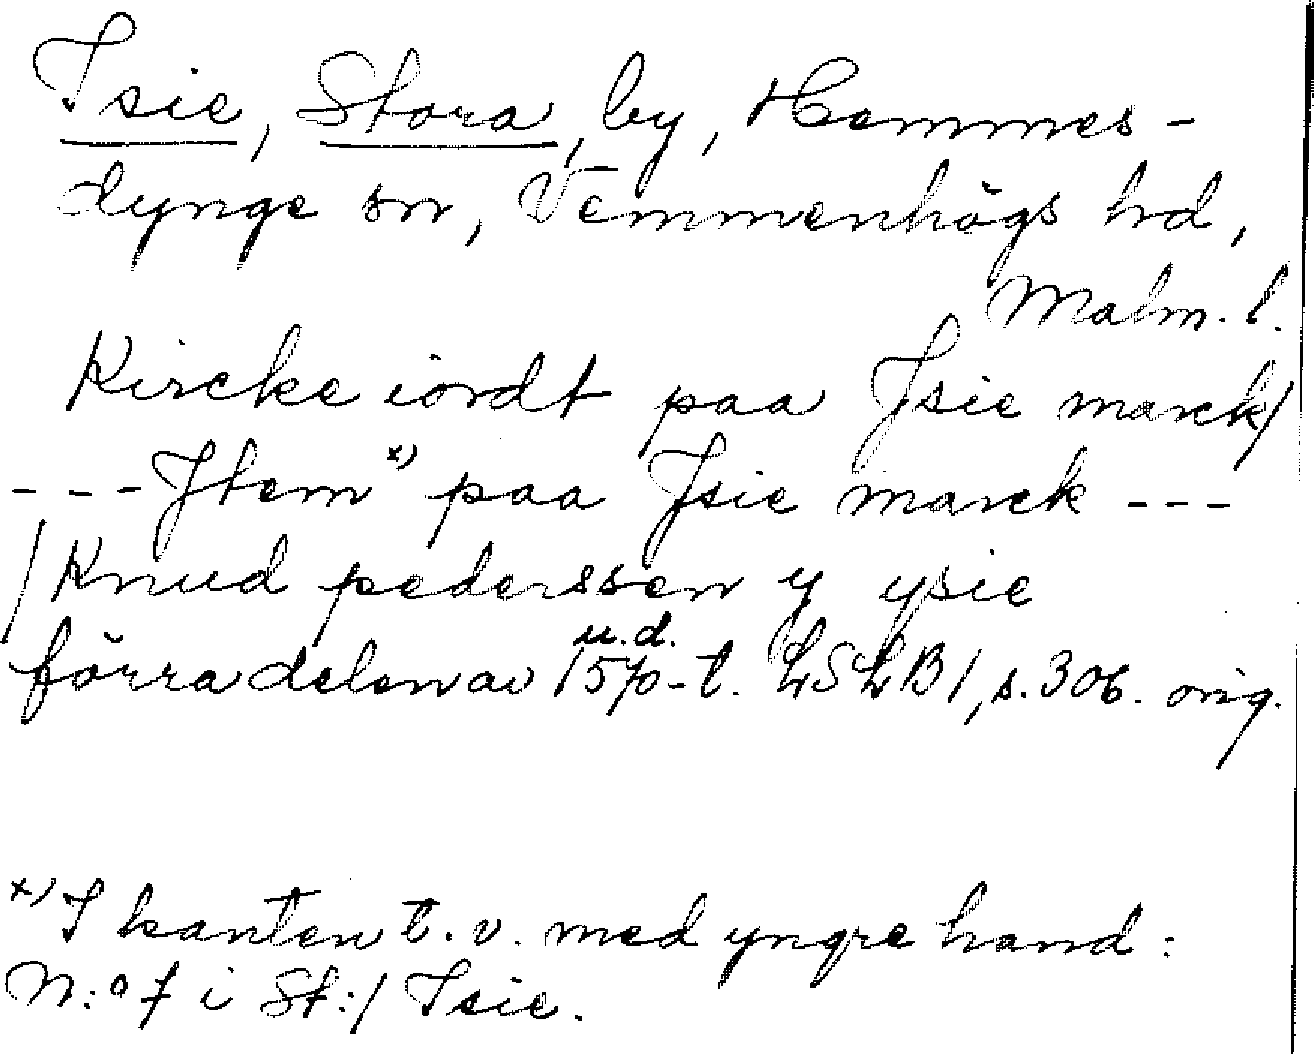 Isie, Stora, by, Hemmes-
dynge sn, Vemmenhögs hd,
Malm. l.
Kircke iördt paa Jsie marck/
---Jtem x) paa Jsie marck ---
/Knud pederssen y ysie
förra delen av 1570-t. u.d. LSLB 1, s. 306. orig.
x) I kanten t. v. med yngre hand:
N:o 7 i St:/ Isie.